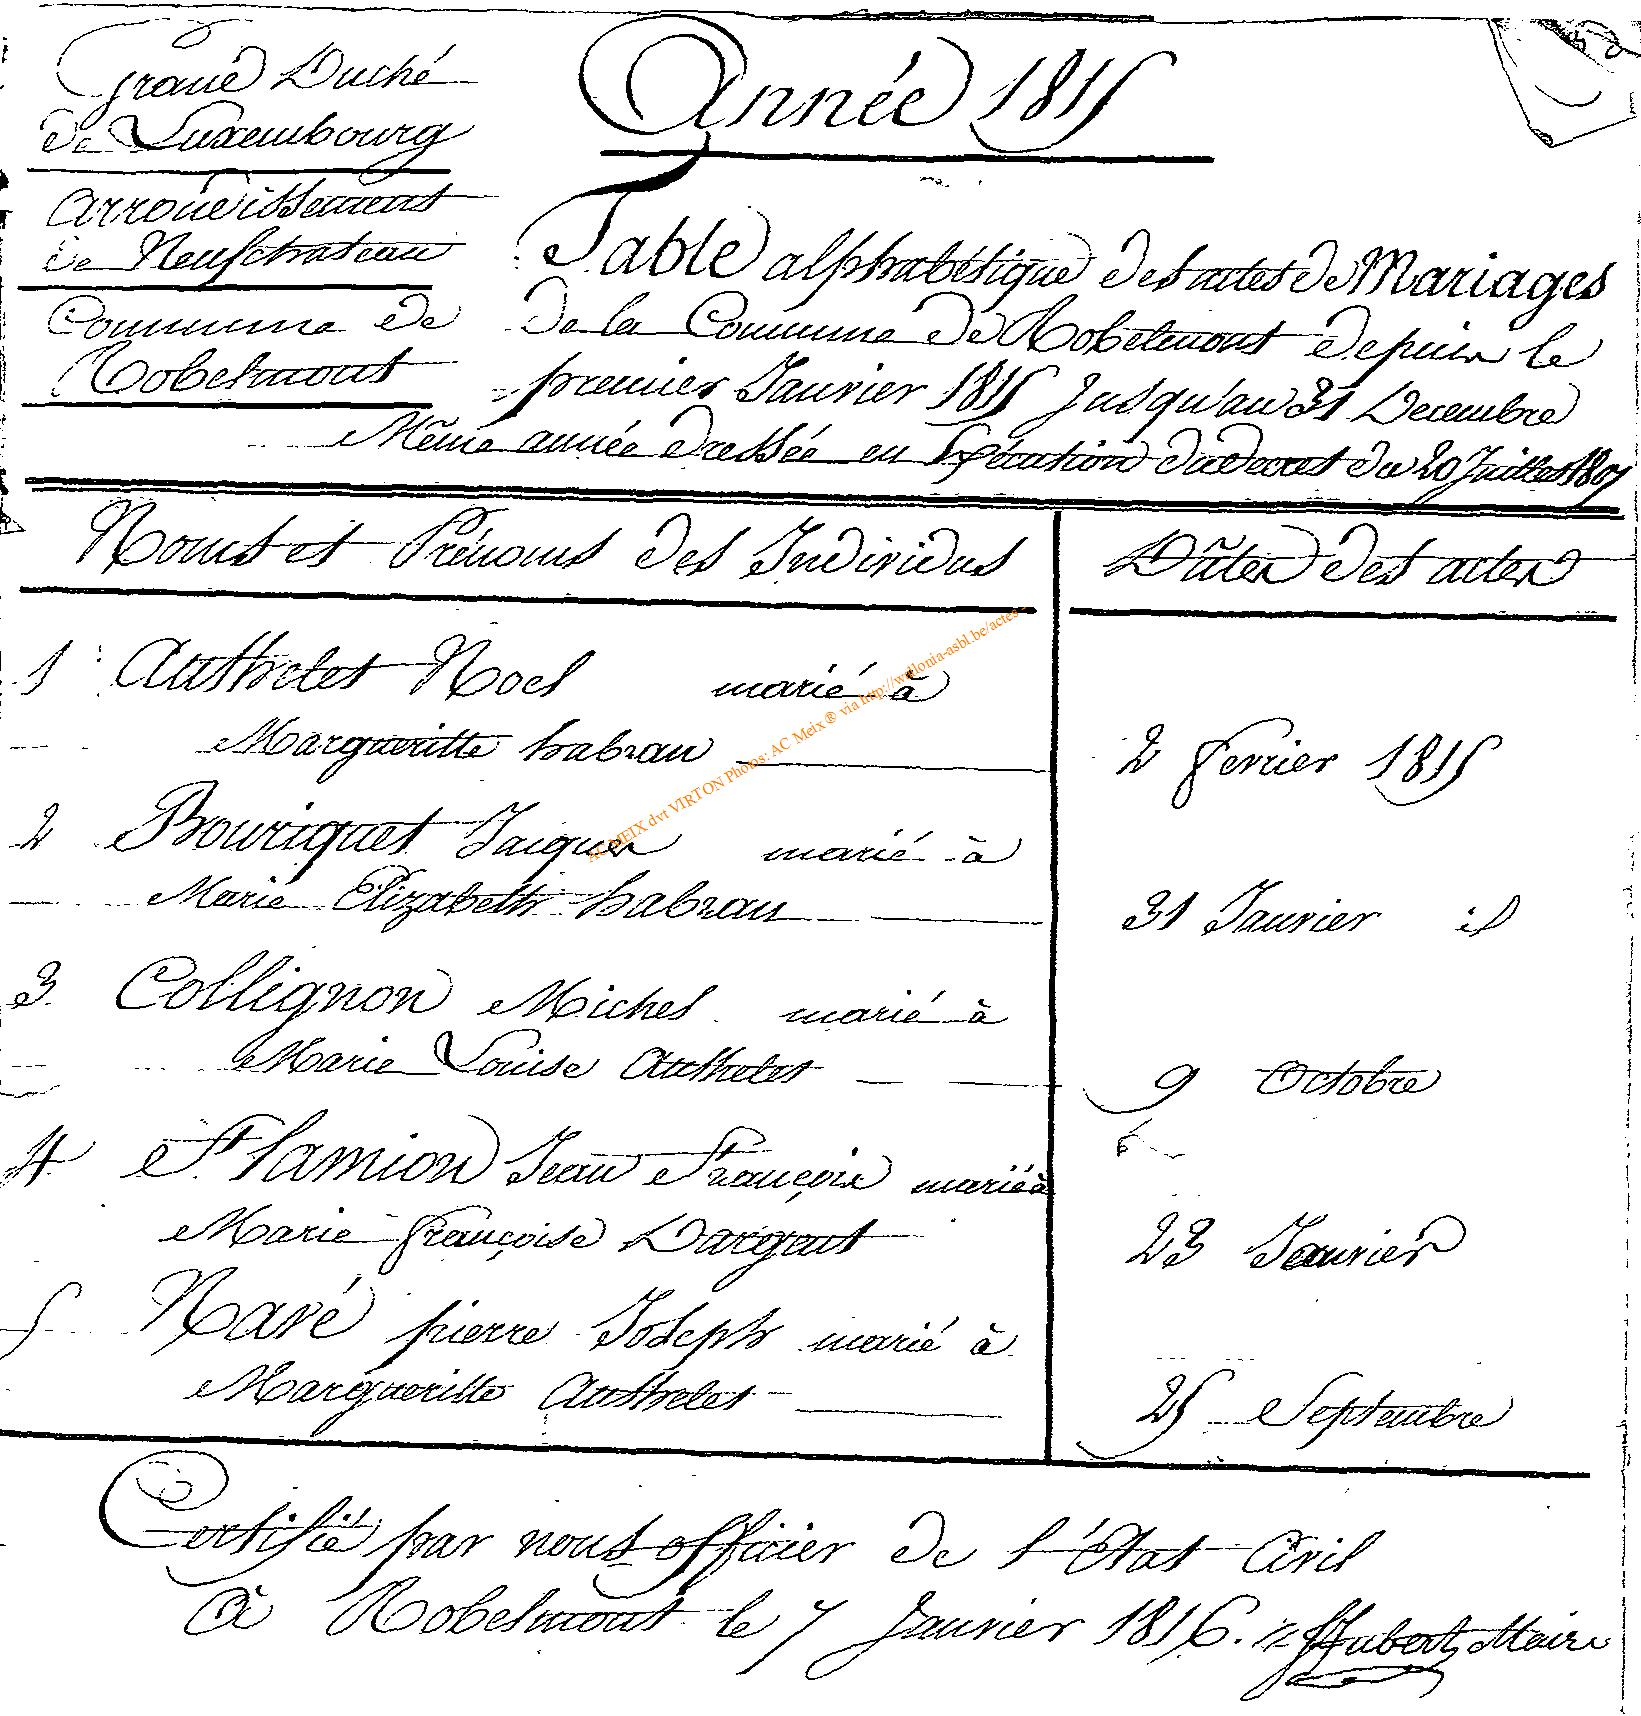 Grand Duché
de Luxembourg
Arrondissement
de Neufchateau
Commune de
Robelmont
Année 1815
Table alphabétique des actes de Mariages
de la Commune de Robelmont depuis le
premier Janvier 1815 Jusqu'au 31 Decembre
Même année dressée en Exécution du decret du 20 Juillet 1807
Noms et Prénoms des Individus
Dâtes des actes
1 Authelet Noel marié à
Margueritte habran
2 Fevrier 1815
2 Bouriquet Jaques marié à
Marie Elizabeth habran
31 Janvier id
3 Collignon Michel marié à
Marie Louise Authelet
9 Octobre
4 Flamion Jean François marié à
Marie françoise Dargent
23 Janvier
5 Navé pierre Joseph marié à
Margueritte Authelet
25 Septembre
Certifié par nous officier de l'état Civil
à Robelmont le 7 Janvier 1816. Hubert Maire
AC MEIX dvt VIRTON Photos: AC Meix ® via http://wallonia-asbl.be/actes